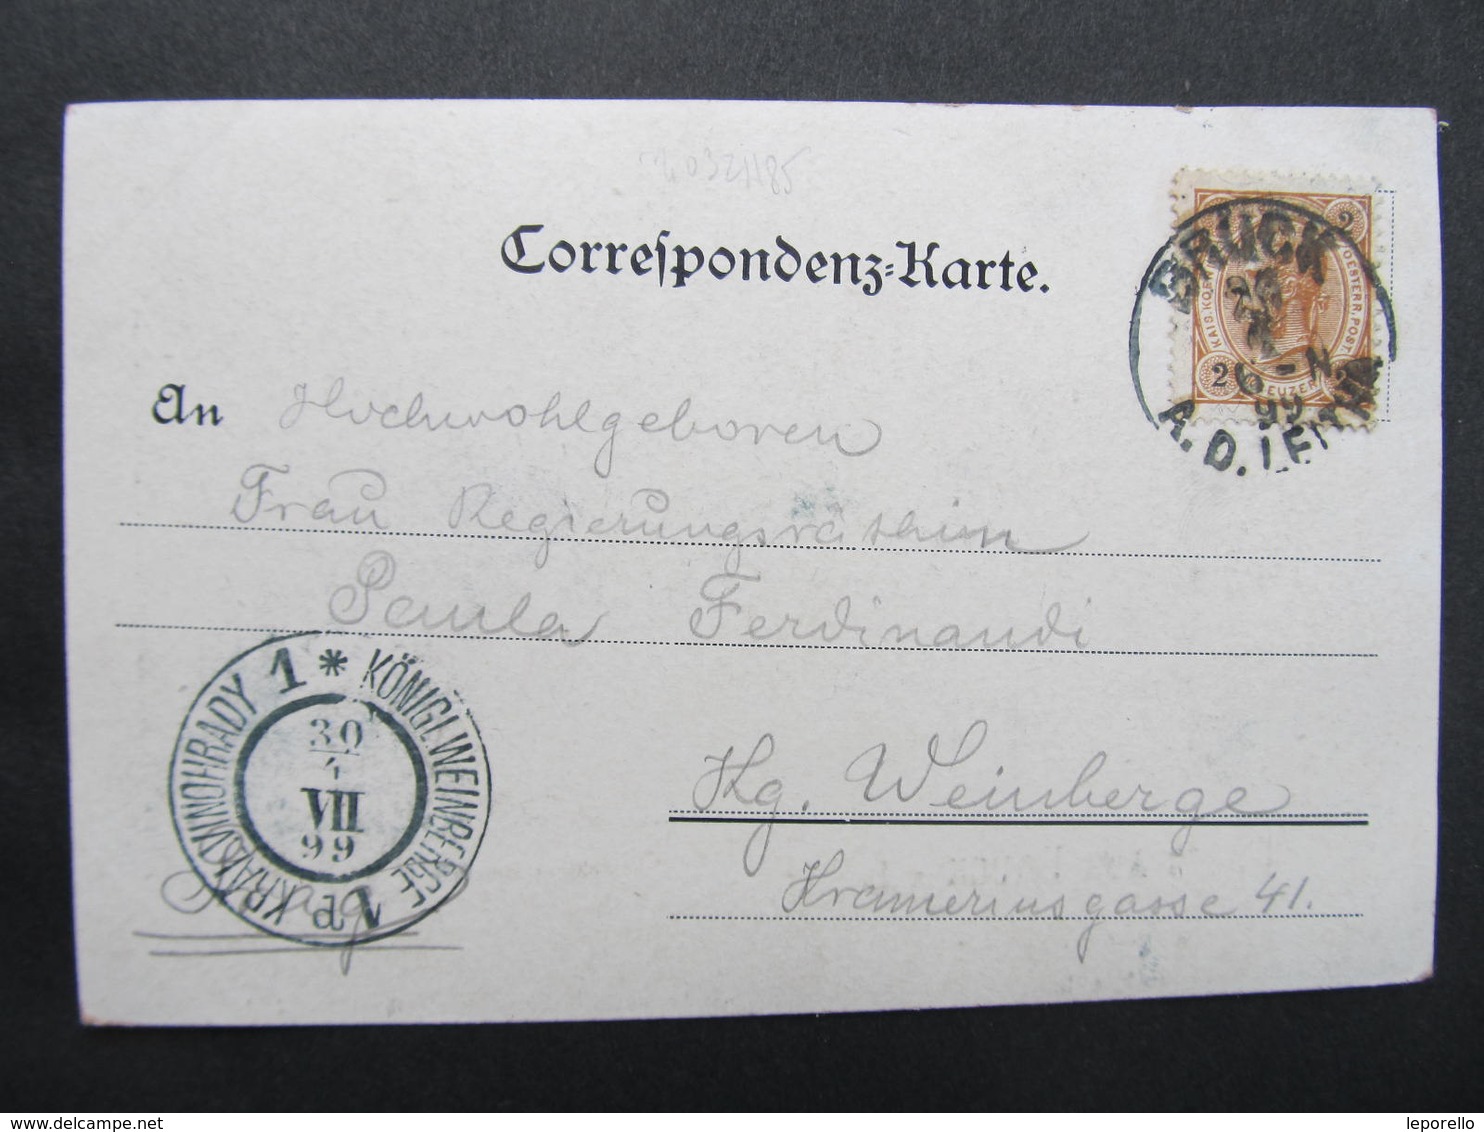 20321185
Correspondenz-Karte.
2 2
KAIS. OESTERR. POST.
2 KREUZER 2
BRUCK
6-N
99
A.D. LEITHA
An Hochwohlgeboren
Frau Regierungsräthin
Paula Ferdinandi
1 * KÖNIGL. WEINBERGE 1 KRÁL. VINOHRADY
30
4
VII
99
Kg. Weinberge
Prag
Krameriusgasse 41.
leporello